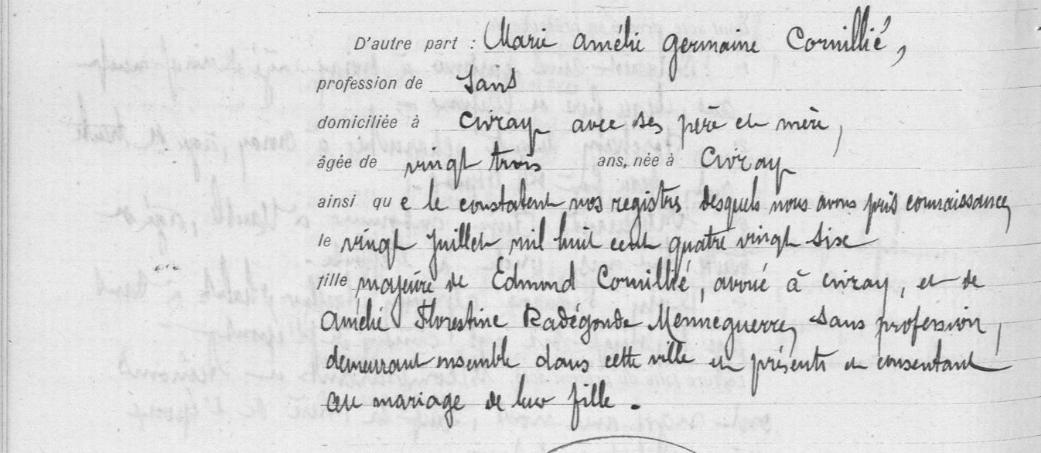 D'autre part : Marie amélie germaine Cornillié,
profession de Sans
domiciliée à Civray avec ses père et mère,
âgée de vingt trois ans, née à Civray
ainsi qu e le constatent nos registres desquels nous avons pris connaissance,
le vingt juillet mil huit cent quatre vingt six
fille majeure de Edmond Cornillié, avoué à Civray, et de
amélie Florestine Radégonde Menneguerre, sans profession,
demeurant ensemble dans cette ville ici présents et consentant
au mariage de leur fille.